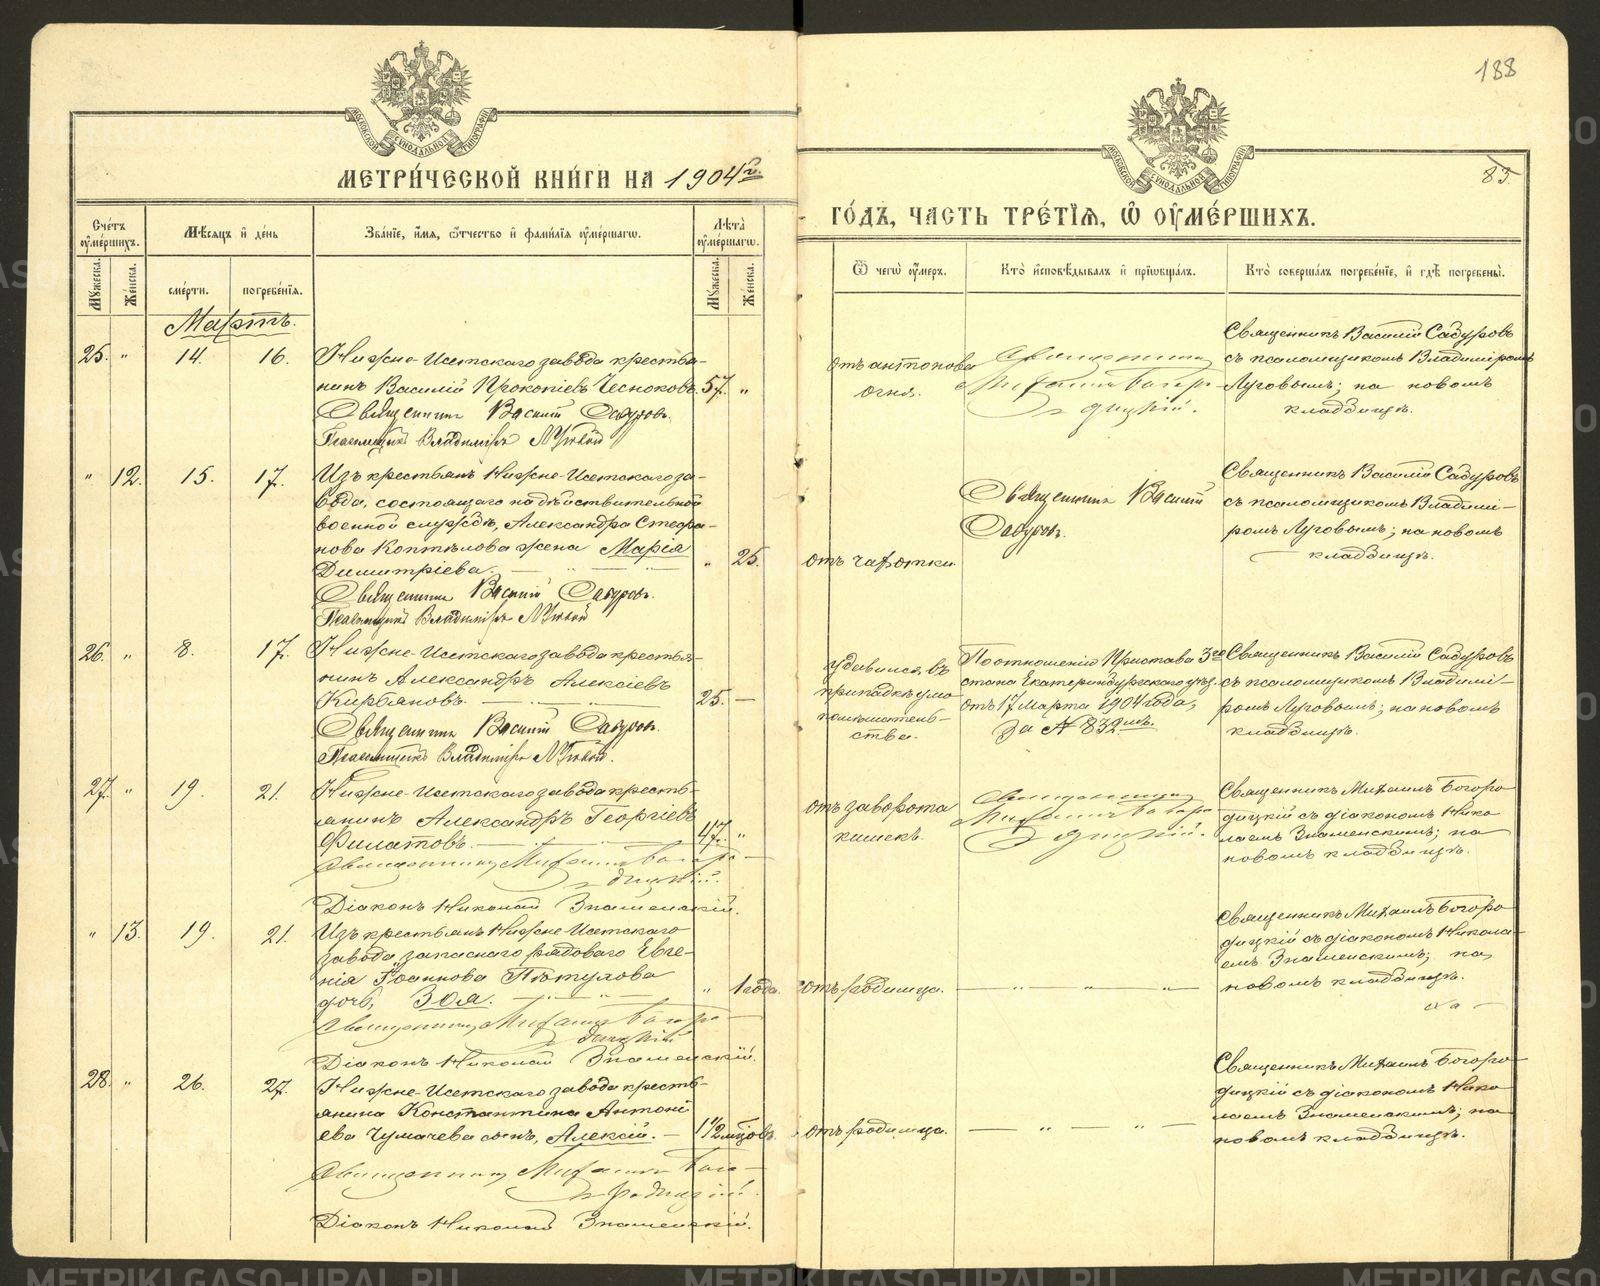 188
85
МОСКОВСКОЙ СУНОДАЛЬНОЙ ТИПОГРАФІИ
МЕТРИ́ЧЕСКОЙ КНИ́ГИ НА 1904 г.
МОСКОВСКОЙ СУНОДАЛЬНОЙ ТИПОГРАФІИ
ГО́ДЪ, ЧАСТЬ ТРЕ́ТІѦ, Ѡ ОУМЕ́РШИХЪ.
Сче́тъ оуме́ршихъ.
Мѣсяцъ и де́нь
Зва́нїе, и́мя, о́тчество и фами́лїя оуме́ршагѡ.
Лѣта оуме́ршагѡ.
Мужеска. Женска.
сме́рти. погребе́нїя.
Мужеска. Женска.
Ѿ чегѡ̀ оу́меръ.
Кто̀ исповѣ́дывалъ и прїѡбща́лъ.
Кто̀ соверша́лъ погребе́нїе, и гдѣ̀ погребены̀.
Мартъ.
25. " 14. 16.
Нижне-Исетскаго завода крестья-
нинъ Василій Прокопіевъ Чесноковъ. 57. "
Священникъ Василій Сабуровъ.
Псаломщикъ Владиміръ Луговой
отъ антонова
огня.
Священникъ
Михаилъ Бого-
родицкій.
Священникъ Василій Сабуровъ
съ псаломщикомъ Владиміромъ
Луговымъ; на новомъ
кладбищѣ.
" 12. 15. 17.
Изъ крестьянъ Нижне-Исетскаго за-
вода, состоящаго на дѣйствительной
военной службѣ, Александра Стефа-
нова Коптѣлова жена Марія
Димитріева. " 25.
Священникъ Василій Сабуровъ.
Псаломщикъ Владиміръ Луговой
отъ чахотки.
Священникъ Василій
Сабуровъ.
Священникъ Василій Сабуровъ
съ псаломщикомъ Владимі-
ромъ Луговымъ; на новомъ
кладбищѣ.
26. " 8. 17.
Нижне-Исетскаго завода крестья-
нинъ Александръ Алексіевъ
Кирьяновъ. 25. —
Священникъ Василій Сабуровъ.
Псаломщикъ Владиміръ Луговой.
удавился въ
припадкѣ умо
помѣшатель-
ства.
По отношенію Пристава 3го
стана Екатеринбургскаго уѣз.
отъ 17 Марта 1904 года,
за № 832мъ.
Священникъ Василій Сабуровъ
съ псаломщикомъ Владимі-
ромъ Луговымъ; на новомъ
кладбищѣ.
27. " 19. 21.
Нижне-Исетскаго завода кресть-
янинъ Александръ Георгіевъ
Филатовъ. 47. "
Священникъ Михаилъ Бого-
родицкій.
Діаконъ Николай Знаменскій.
отъ заворота
кишекъ.
Священникъ
Михаилъ Бого-
родицкій.
Священникъ Михаилъ Богоро
дицкій съ діакономъ Нико
лаемъ Знаменскимъ; на
новомъ кладбищѣ.
" 13. 19. 21.
Изъ крестьянъ Нижне-Исетскаго
завода запаснаго рядоваго Евге-
нія Іоаннова Пѣтухова
дочь, Зоя. " 1 года.
Священникъ Михаилъ Бого-
родицкій
Діаконъ Николай Знаменскій.
отъ родимца. — " — " —
Священникъ Михаилъ Богоро
дицкій съ діакономъ Никола-
емъ Знаменскимъ; на
новомъ кладбищѣ.
28. " 26. 27.
Нижне-Исетскаго завода кресть-
янина Константина Антоні
ева Чумачева сынъ, Алексій. — 1 1/2 мѣцовъ.
Священникъ Михаилъ Бого-
родицкій.
Діаконъ Николай Знаменскій.
отъ родимца. — " — " —
Священникъ Михаилъ Богоро-
дицкій съ діакономъ Нико
лаемъ Знаменскимъ; на
новомъ кладбищѣ.
METRIKI.GASO-URAL.RU